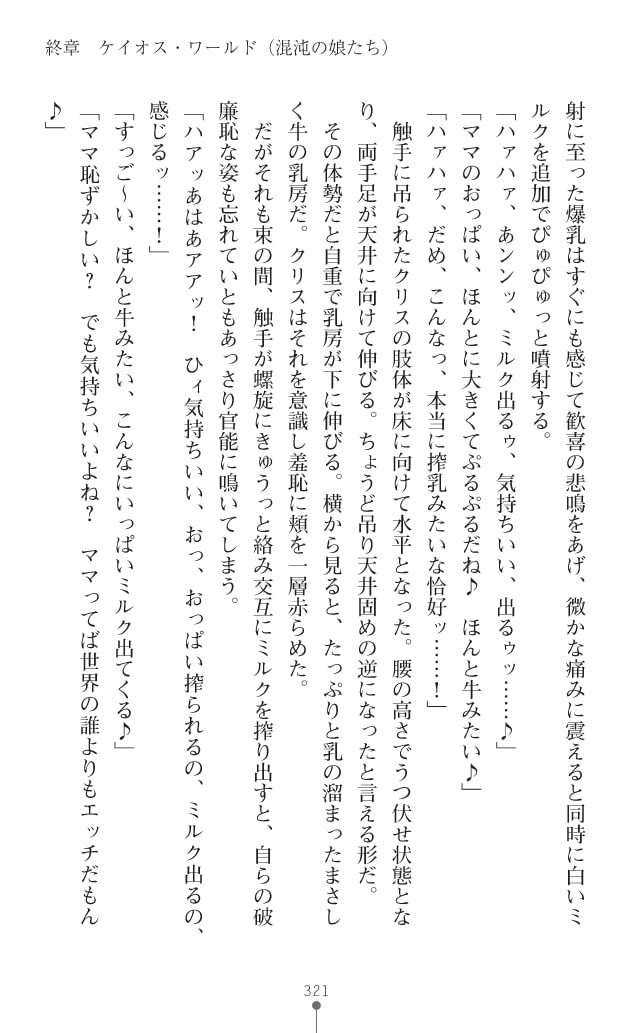 終章　ケイオス・ワールド（混沌の娘たち）
射に至った爆乳はすぐにも感じて歓喜の悲鳴をあげ、微かな痛みに震えると同時に白いミ
ルクを追加でぴゅぴゅっと噴射する。
「ハァハァ、あンンッ、ミルク出るゥ、気持ちいい、出るゥッ……♪」
「ママのおっぱい、ほんとに大きくてぷるぷるだね♪　ほんと牛みたい♪」
「ハァハァ、だめ、こんなっ、本当に搾乳みたいな恰好ッ……！」
触手に吊られたクリスの肢体が床に向けて水平となった。腰の高さでうつ伏せ状態とな
り、両手足が天井に向けて伸びる。ちょうど吊り天井固めの逆になったと言える形だ。
その体勢だと自重で乳房が下に伸びる。横から見ると、たっぷりと乳の溜まったまさし
く牛の乳房だ。クリスはそれを意識し羞恥に頬を一層赤らめた。
だがそれも束の間、触手が螺旋にきゅうっと絡み交互にミルクを搾り出すと、自らの破
廉恥な姿も忘れていともあっさり官能に鳴いてしまう。
「ハアッあはあアアッ！　ひィ気持ちいい、おっ、おっぱい搾られるの、ミルク出るの、
感じるッ……！」
「すっご～い、ほんと牛みたい、こんなにいっぱいミルク出てくる♪」
「ママ恥ずかしい？　でも気持ちいいよね？　ママってば世界の誰よりもエッチだもん
♪」
321